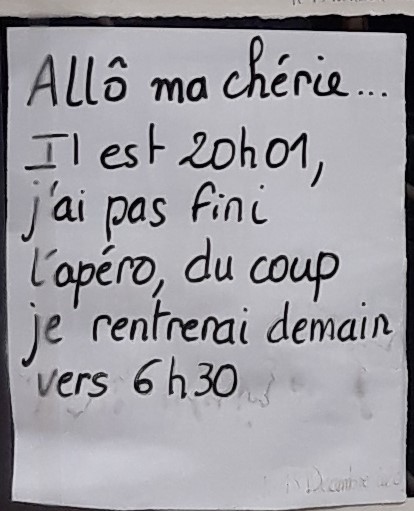 Allô ma chérie...
Il est 20h01,
j'ai pas fini
l'apéro, du coup
je rentrerai demain
vers 6h30